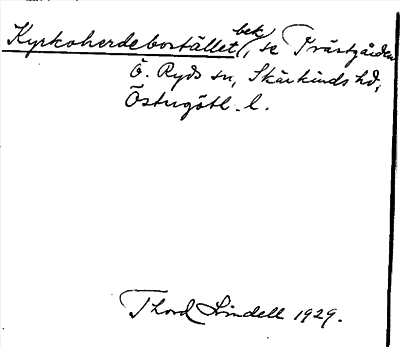 Kyrkoherdebostället, bek se Prästgården
Ö. Ryds sn, Skärkinds hd,
Östergötl. l.
Thord Lindell 1929.